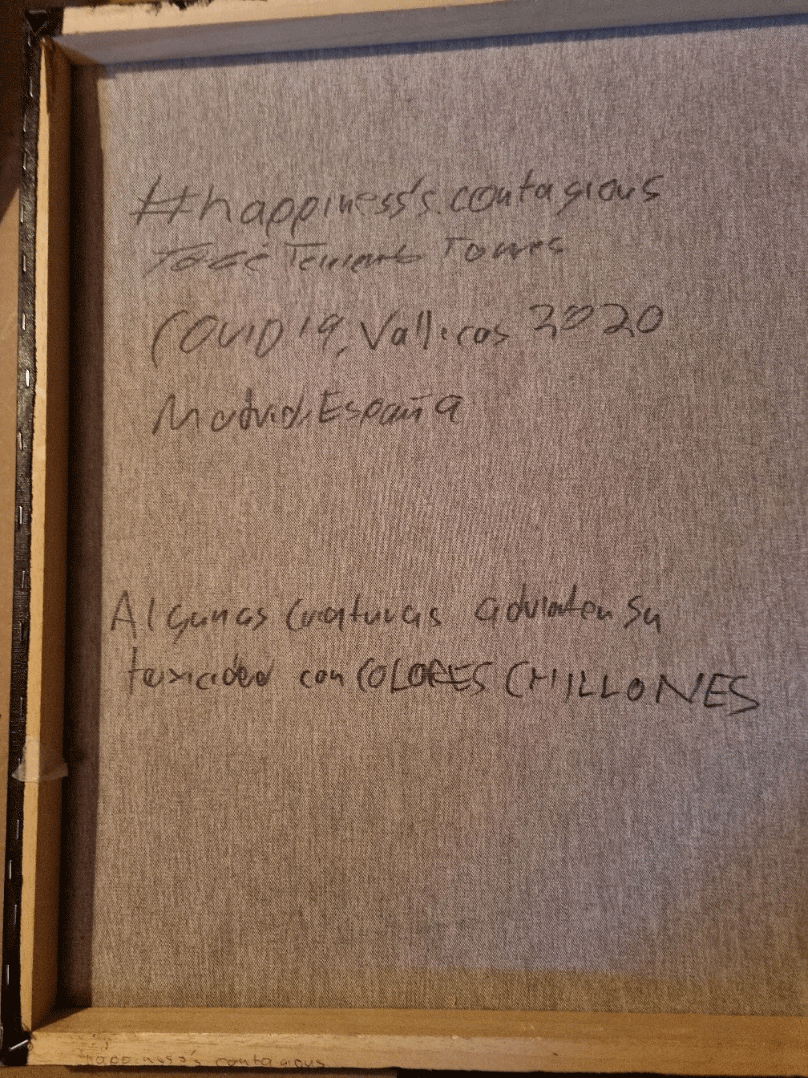 #happiness's.contagious
José Torres
COVID19, Vallecas 2020
Madrid, España
Algunas criaturas advierten su
toxicidad con COLORES CHILLONES
happiness's contagious